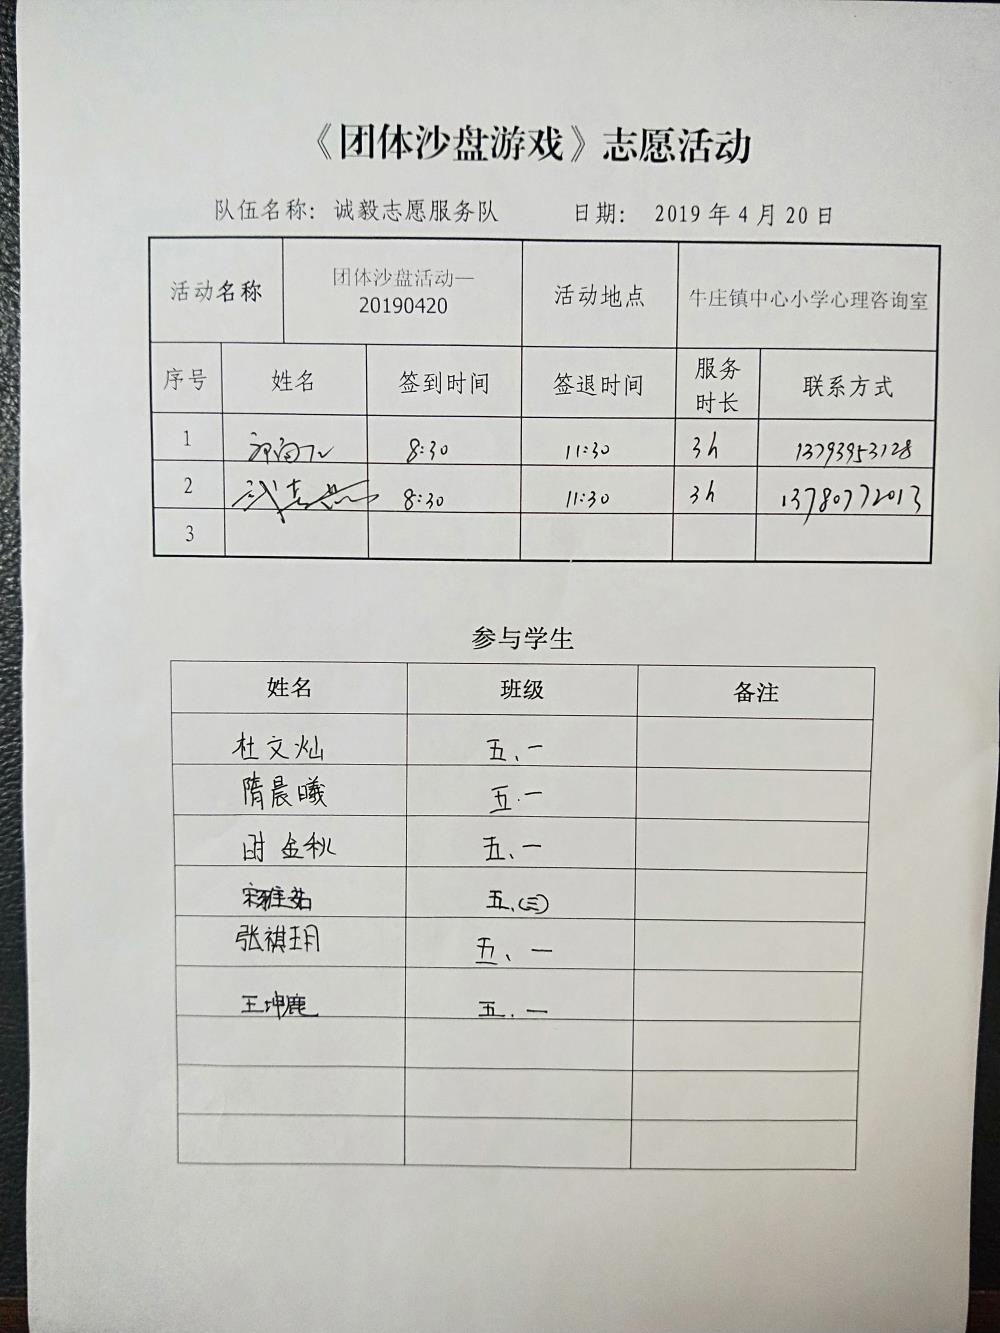 《团体沙盘游戏》志愿活动
队伍名称：诚毅志愿服务队 日期： 2019 年 4 月 20 日
活动名称 团体沙盘活动—20190420 活动地点 牛庄镇中心小学心理咨询室
序号 姓名 签到时间 签退时间 服务时长 联系方式
1 8:30 11:30 3h 13793953128
2 8:30 11:30 3h 13780772013
3
参与学生
姓名 班级 备注
杜文灿 五、一
隋晨曦 五.一
时金秋 五、一
宋雅茹 五、(三)
张祺玥 五、一
王坤鹿 五.一